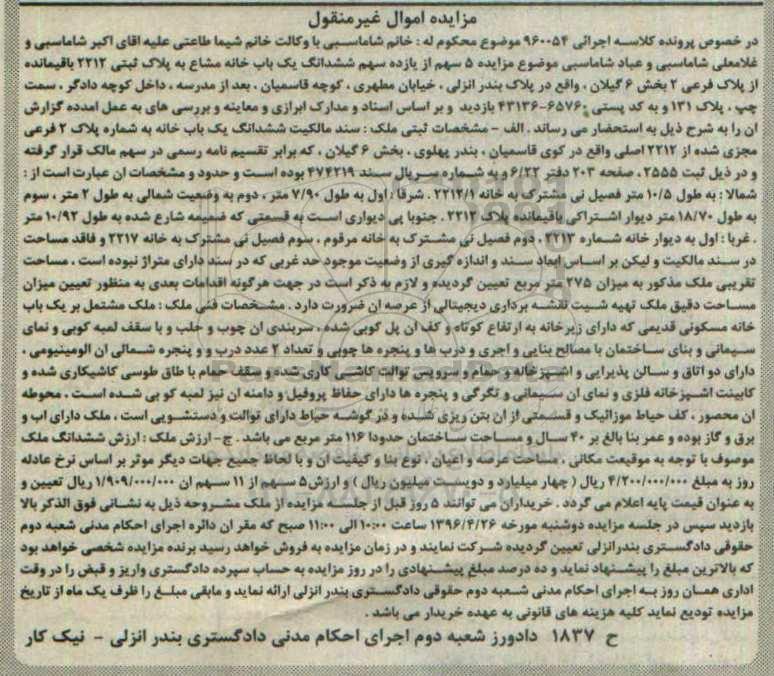 مزایده اموال غیرمنقول
در خصوص پرونده کلاسه اجرائی ۹۶۰۰۵۴ موضوع محکوم له : خانم شاماسبی با وکالت خانم شیما طاعتی علیه اقای اکبر شاماسبی و
غلامعلی شاماسبی و عباد شاماسبی موضوع مزایده ۵ سهم از یازده سهم ششدانگ یک باب خانه مشاع به پلاک ثبتی ۲۲۱۲ باقیمانده
از پلاک فرعی ۲ بخش ۶ گیلان ، واقع در پلاک بندر انزلی ، خیابان مطهری ، کوچه قاسمیان ، بعد از مدرسه ، داخل کوچه دادگر ، سمت
چپ ، پلاک ۱۳۱ و به کد پستی ۶۵۷۶۰-۴۳۱۳۶ بازدید و بر اساس اسناد و مدارک ابرازی و معاینه و بررسی های به عمل امدده گزارش
ان را به شرح ذیل به استحضار می رساند . الف - مشخصات ثبتی ملک : سند مالکیت ششدانگ یک باب خانه به شماره پلاک ۲ فرعی
مجزی شده از ۲۲۱۲ اصلی واقع در کوی قاسمیان ، بندر پهلوی ، بخش ۶ گیلان ، که برابر تقسیم نامه رسمی در سهم مالک قرار گرفته
و در ذیل ثبت ۲۵۵۵ ، صفحه ۲۰۳ دفتر ۶/۲۲ و به شماره سریال سند ۴۷۴۲۱۹ بوده است و حدود و مشخصات ان عبارت است از :
شمالا : به طول ۱۰/۵ متر فصیل نی مشترک به خانه ۲۲۱۲/۱ . شرقا : اول به طول ۷/۹۰ متر ، دوم به وضعیت شمالی به طول ۲ متر ، سوم
به طول ۱۸/۷۰ متر دیوار اشتراکی باقیمانده پلاک ۲۲۱۲ . جنوبا پی دیواری است به قسمتی که ضمیمه شارع شده به طول ۱۰/۹۲ متر
. غربا : اول به دیوار خانه شماره ۲۲۱۳ ، دوم فصیل نی مشترک به خانه مرقوم ، سوم فصیل نی مشترک به خانه ۲۲۱۷ و فاقد مساحت
در سند مالکیت و لیکن بر اساس ابعاد سند و اندازه گیری از وضعیت موجود حد غربی که در سند دارای متراژ نبوده است ، مساحت
تقریبی ملک مذکور به میزان ۲۷۵ متر مربع تعیین گردیده و لازم به ذکر است در جهت هرگونه اقدامات بعدی به منظور تعیین میزان
مساحت دقیق ملک تهیه شیت نقشه برداری دیجیتالی از عرصه ان ضرورت دارد . مشخصات فنی ملک : ملک مشتمل بر یک باب
خانه مسکونی قدیمی که دارای زیرخانه به ارتفاع کوتاه و کف ان پل کوبی شده ، سربندی ان چوب و حلب و با سقف لمبه کوبی و نمای
سیمانی و بنای ساختمان با مصالح بنایی و اجری و درب ها و پنجره ها چوبی و تعداد ۲ عدد درب و و پنجره شمالی ان الومینیومی ،
دارای دو اتاق و سالن پذیرایی و اشپزخانه و حمام و سرویس توالت کاشی کاری شده و سقف حمام با طاق طوسی کاشیکاری شده و
کابینت اشپزخانه فلزی و نمای ان سیمانی و تگرگی و پنجره ها دارای حفاظ پروفیل و دامنه ان نیز لمبه کو بی شده است ، محوطه
ان محصور ، کف حیاط موزائیک و قسمتی از ان بتن ریزی شده و در گوشه حیاط دارای توالت و دستشویی است ، ملک دارای اب و
برق و گاز بوده و عمر بنا بالغ بر ۴۰ سال و مساحت ساختمان حدودا ۱۱۶ متر مربع می باشد . ج- ارزش ملک : ارزش ششدانگ ملک
موصوف با توجه به موقیعت مکانی ، مساحت عرصه و اعیان ، نوع بنا و کیفیت ان و با لحاظ جمیع جهات دیگر موثر بر اساس نرخ عادله
روز به مبلغ ۴/۲۰۰/۰۰۰/۰۰۰ ریال ( چهار میلیارد و دویست میلیون ریال ) و ارزش ۵ سهم از ۱۱ سهم ان ۱/۹۰۹/۰۰۰/۰۰۰ ریال تعیین و
به عنوان قیمت پایه اعلام می گردد . خریداران می توانند ۵ روز قبل از جلسه مزایده از ملک مشروحه ذیل به نشانی فوق الذکر بالا
بازدید سپس در جلسه مزایده دوشنبه مورخه ۱۳۹۶/۴/۲۶ ساعت ۱۰:۰۰ الی ۱۱:۰۰ صبح که مقر ان دائره اجرای احکام مدنی شعبه دوم
حقوقی دادگستری بندرانزلی تعیین گردیده شرکت نمایند و در زمان مزایده به فروش خواهد رسید برنده مزایده شخصی خواهد بود
که بالاترین مبلغ را پیشنهاد نماید و ده درصد مبلغ پیشنهادی را در روز مزایده به حساب سپرده دادگستری واریز و قبض را در وقت
اداری همان روز به اجرای احکام مدنی شعبه دوم حقوقی دادگستری بندر انزلی ارائه نماید و مابقی مبلغ را ظرف یک ماه از تاریخ
مزایده تودیع نماید کلیه هزینه های قانونی به عهده خریدار می باشد .
ح ۱۸۳۷ دادورز شعبه دوم اجرای احکام مدنی دادگستری بندر انزلی - نیک کار